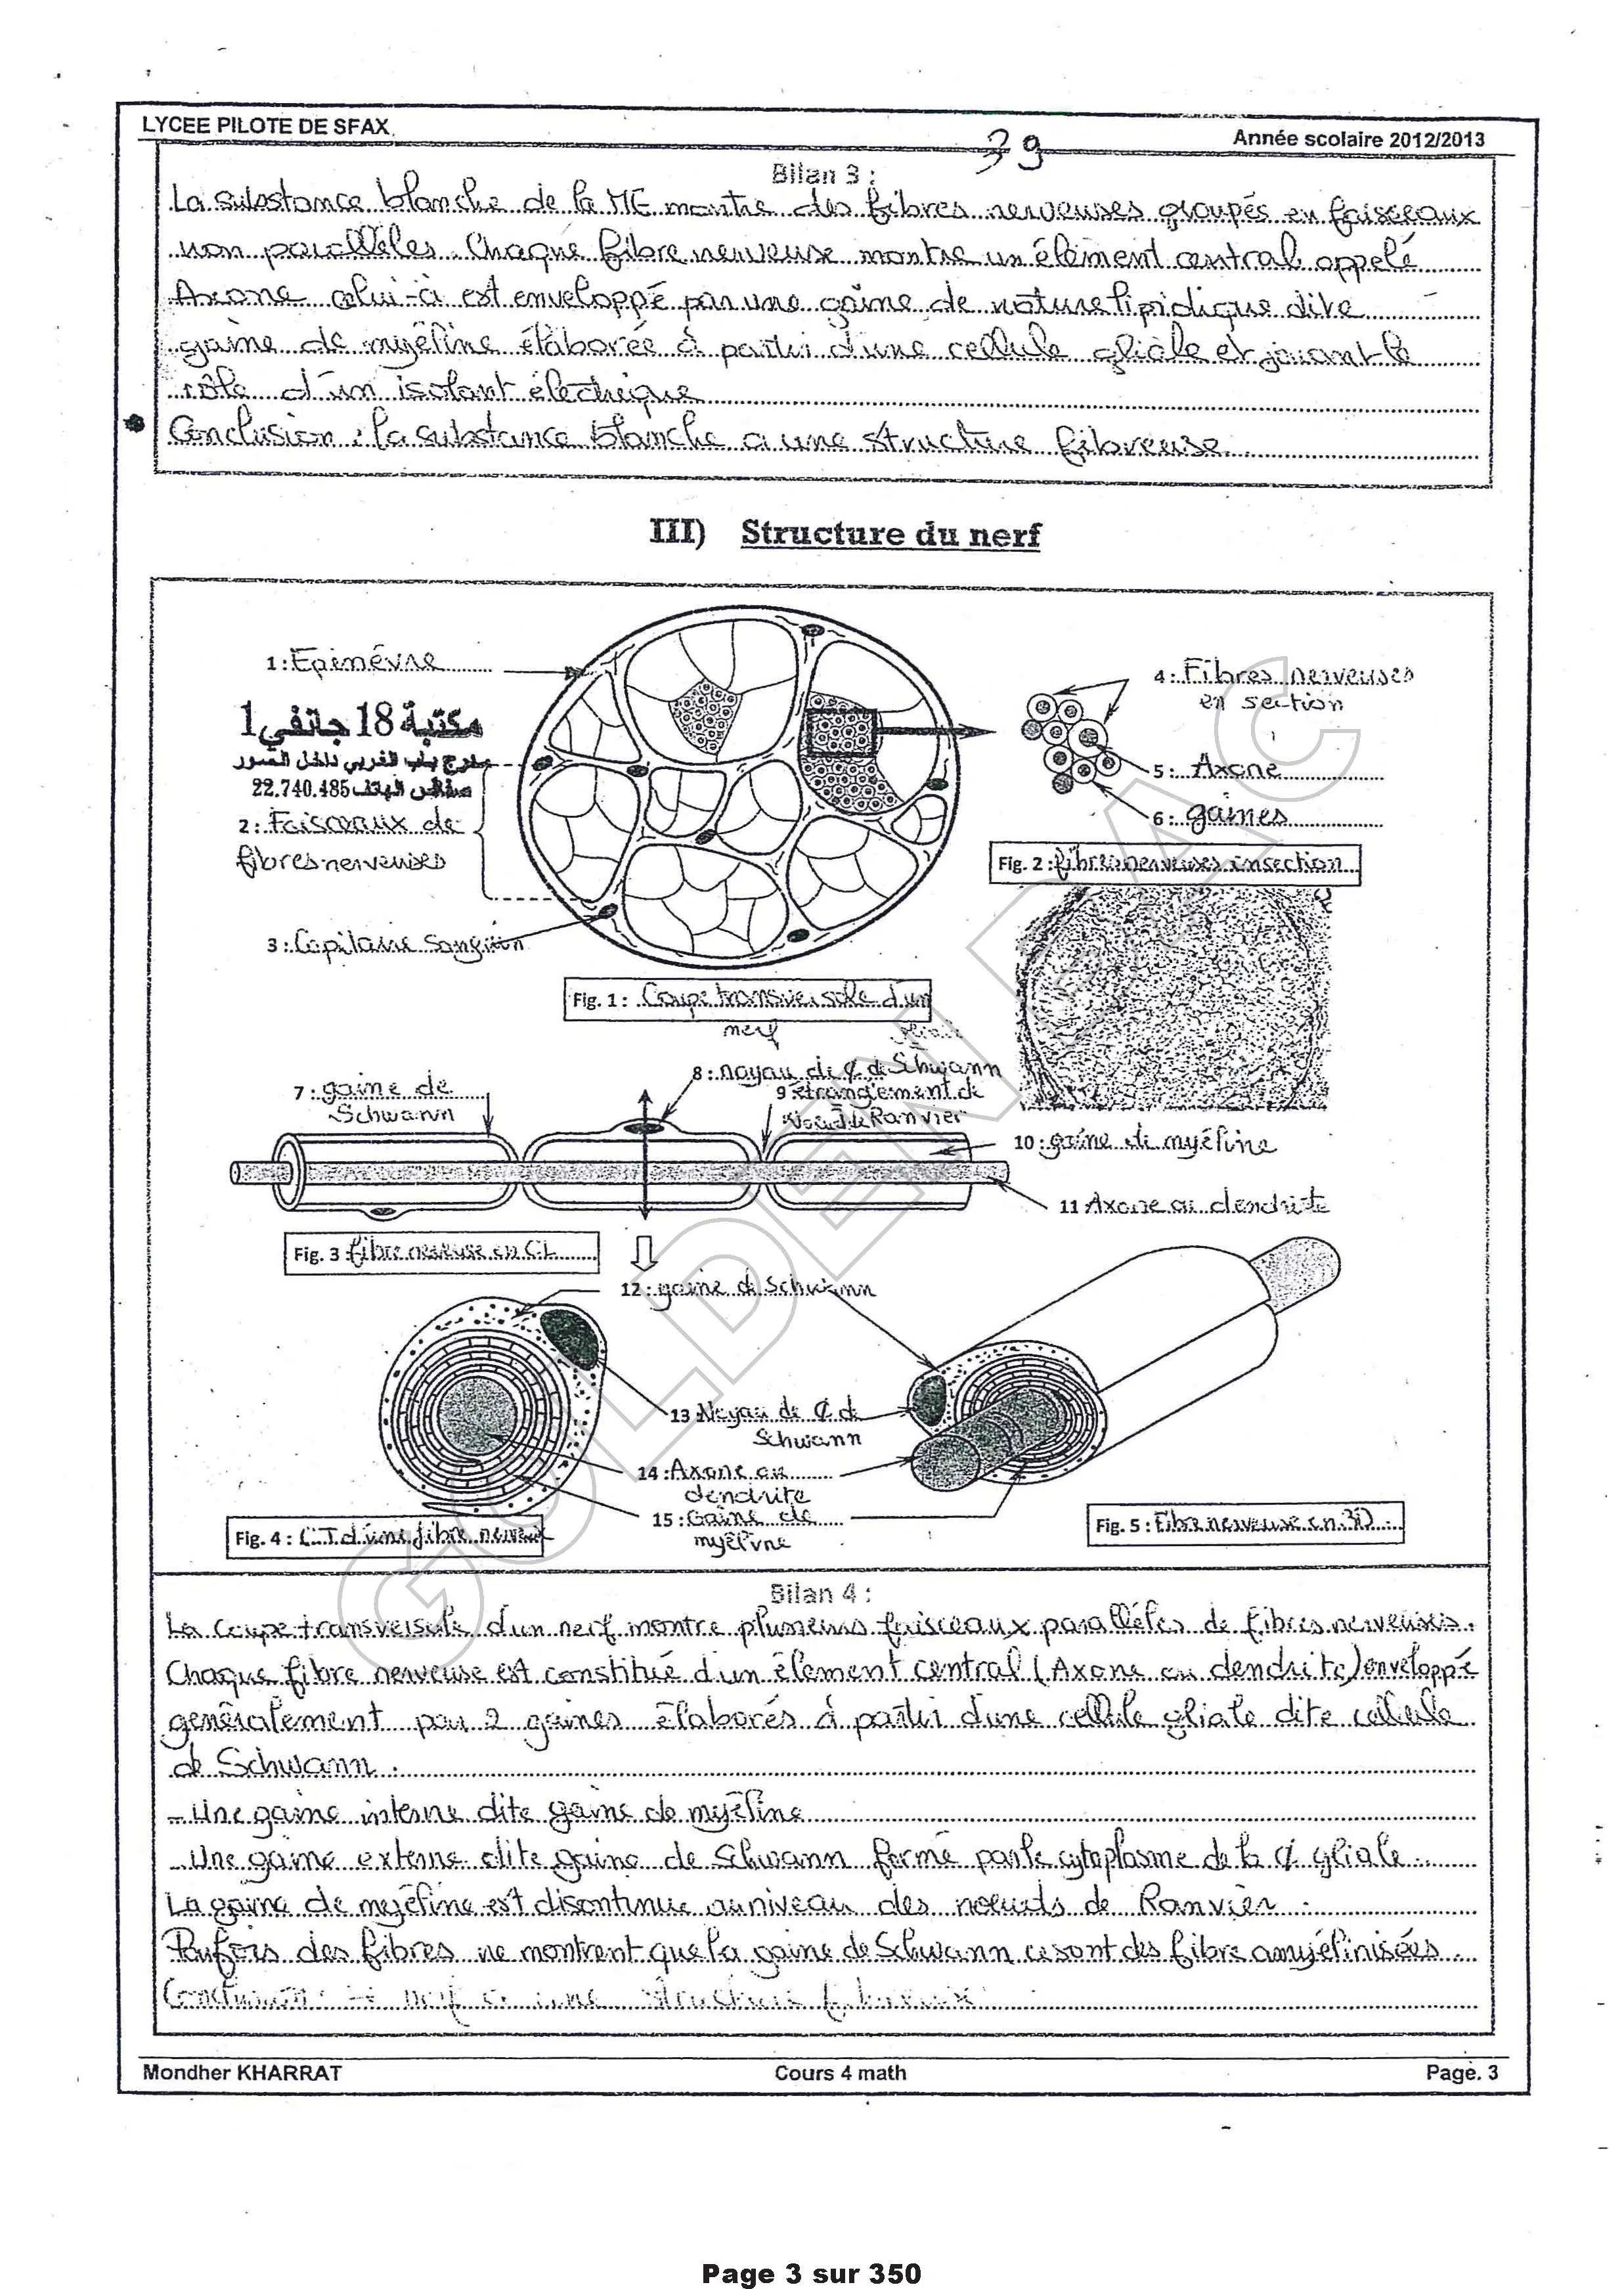 LYCEE PILOTE DE SFAX
Année scolaire 2012/2013
39
Bilan 3 :
La substance blanche de la ME montre des fibres nerveuses groupés en faisceaux
non parallèles. Chaque fibre nerveuse montre un élément central appelé
Axone celui-ci est enveloppé par une gaine de nature lipidique dite
gaine de myéline élaborée à partir d'une cellule gliale et jouant le
rôle d'un isolant électrique
Conclusion : la substance blanche a une structure fibreuse.
III) Structure du nerf
1 : Epinèvre
مكتبة 18 جانفي 1
باب الغربي داخل السور
صفاقس الهاتف 22.740.485
2 : Faisceaux de
fibres nerveuses
3 : Capilaire sanguin
4 : Fibres nerveuses
en section
5 : Axone
6 : gaines
Fig. 2 : fibres nerveuses en section
Fig. 1 : Coupe transversale d'un
nerf
7 : gaine de
Schwann
8 : noyau de ₵ de Schwann
9 étranglement de
Noeud de Ranvier
10 : gaine de myéline
11 Axone ou dendrite
Fig. 3 fibre nerveuse en CL
12 : gaine de Schwann
13 Noyau de ₵ de
Schwann
14 : Axone ou
dendrite
15 : Gaine de
myéline
Fig. 4 : CT d'une fibre nerveux
Fig. 5 : Fibre nerveuse en 3D
GOLDEN BAC
Bilan 4 :
La coupe transversale d'un nerf montre plusieurs faisceaux parallèles de fibres nerveuses.
Chaque fibre nerveuse est constitué d'un élément central (Axone ou dendrite) enveloppé
généralement par 2 gaines élaborés à partir d'une cellule gliale dite cellule
de Schwann.
- Une gaine interne dite gaine de myéline
- Une gaine externe dite gaine de Schwann formé par le cytoplasme de la ₵ gliale.
La gaine de myéline est discontinue au niveau des noeuds de Ranvier.
Parfois des fibres ne montrent que la gaine de Schwann ce sont des fibre amyélinisées.
Conclusion : le nerf a une structure fibreuse
Mondher KHARRAT
Cours 4 math
Page. 3
Page 3 sur 350